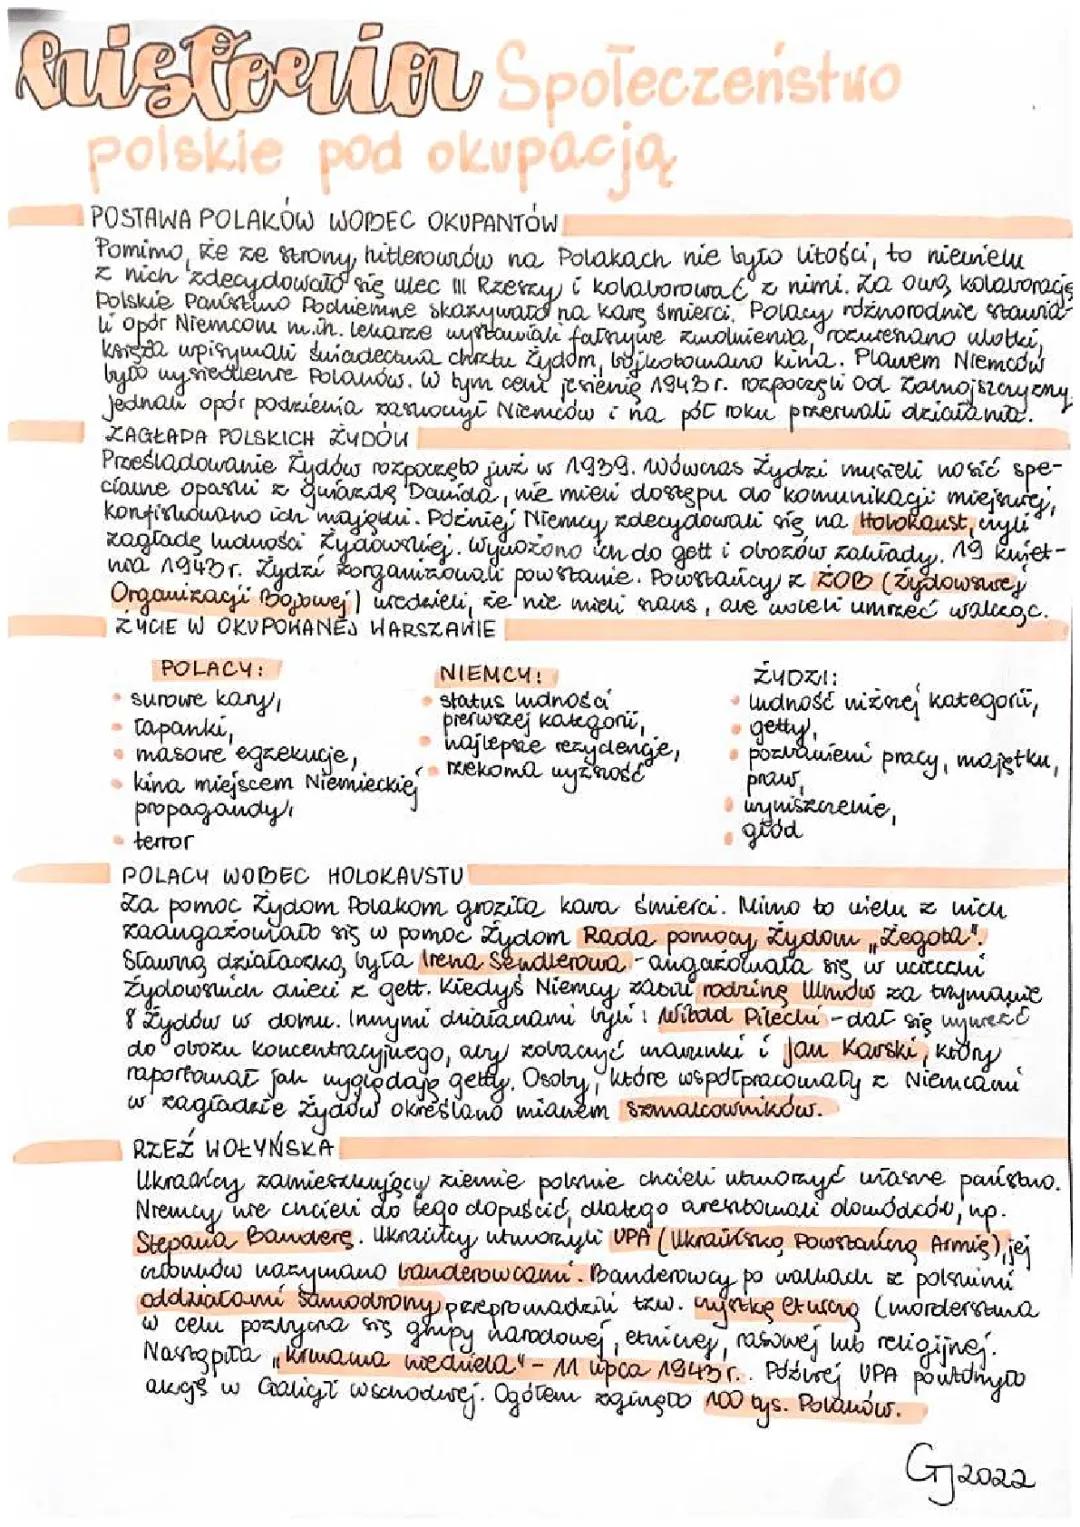 historia Społeczeństwo
polskie pod okupacją
POSTAWA POLAKÓW WOBEC OKUPANTÓW
Pomimo, że ze strony hitlerowców na Polakach nie było litości, to niewielu
z nich zdecydowało się ulec III Rzeszy i kolaborować z nimi. Za ową kolaborację
Polskie Państwo Podziemne skazywało na karę śmierci. Polacy różnorodnie stawia-
li opór Niemcom m.in. lekarze wystawiali fałszywe zwolnienia, rozwieszano ulotki,
księża wpisywali świadectwa chrztu Żydom, bojkotowano kina. Planem Niemców
było wysiedlenie Polaków. W tym celu jesienią 1943 r. rozpoczęli od Zamojszczyzny
jednak opór podziemia zaskoczył Niemców i na pół roku przerwali działania.
ZAGŁADA POLSKICH ŻYDÓW
Prześladowanie Żydów rozpoczęto już w 1939. Wówczas Żydzi musieli nosić spe-
cjalne opaski z gwiazdą Dawida, nie mieli dostępu do komunikacji miejskiej,
konfiskowano ich majątki. Później Niemcy zdecydowali się na Holokaust, czyli
zagładę ludności żydowskiej. Wywożono ich do gett i obozów zagłady. 19 kwiet-
nia 1943 r. Żydzi zorganizowali powstanie. Powstańcy z ŻOB (Żydowskiej
Organizacji Bojowej) wiedzieli, że nie mieli szans, ale woleli umrzeć walcząc.
ŻYCIE W OKUPOWANEJ WARSZAWIE
POLACY:
• surowe kary,
• łapanki,
• masowe egzekucje,
• kina miejscem Niemieckiej
propagandy,
• terror
NIEMCY:
• status ludności
pierwszej kategorii,
• najlepsze rezydencje,
• rzekoma wyższość
ŻYDZI:
• ludność niższej kategorii,
• getty,
• pozbawieni pracy, majątku,
praw,
• wyniszczenie,
• głód
POLACY WOBEC HOLOKAUSTU
Za pomoc Żydom Polakom groziła kara śmierci. Mimo to wielu z nich
zaangażowało się w pomoc Żydom Rada pomocy Żydom „Żegota".
Sławną działaczką była Irena Sendlerowa - angażowała się w
żydowskich dzieci z gett. Kiedyś Niemcy zabili rodzinę Ulmów za trzymanie
8 Żydów w domu. Innymi działanami byli: Witold Pilecki - dał się wywieźć
do obozu koncentracyjnego, aby zobaczyć warunki i Jan Karski, który
raportował jak wyglądają getty. Osoby, które współpracowały z Niemcami
w zagładzie Żydów określano mianem szmalcowników.
RZEŹ WOŁYŃSKA
Ukraińcy zamieszkujący ziemie polskie chcieli utworzyć własne państwo.
Niemcy nie chcieli do tego dopuścić, dlatego aresztowali dowódców, np.
Stepana Banderę. Ukraińcy utworzyli UPA (Ukraińską Powstańczą Armię), jej
członków nazywano banderowcami. Banderowcy po walkach z polskimi
oddziałami samoobrony przeprowadzili tzw. czystkę etniczną (morderstwa
w celu pozbycia się grupy narodowej, etnicznej, rasowej lub religijnej.
Nastąpiła „krwawa niedziela" - 11 lipca 1943 r.. Później UPA powtórzyło
akcję w Galicji wschodniej. Ogółem zginęło 100 tys. Polaków.
GJ2022